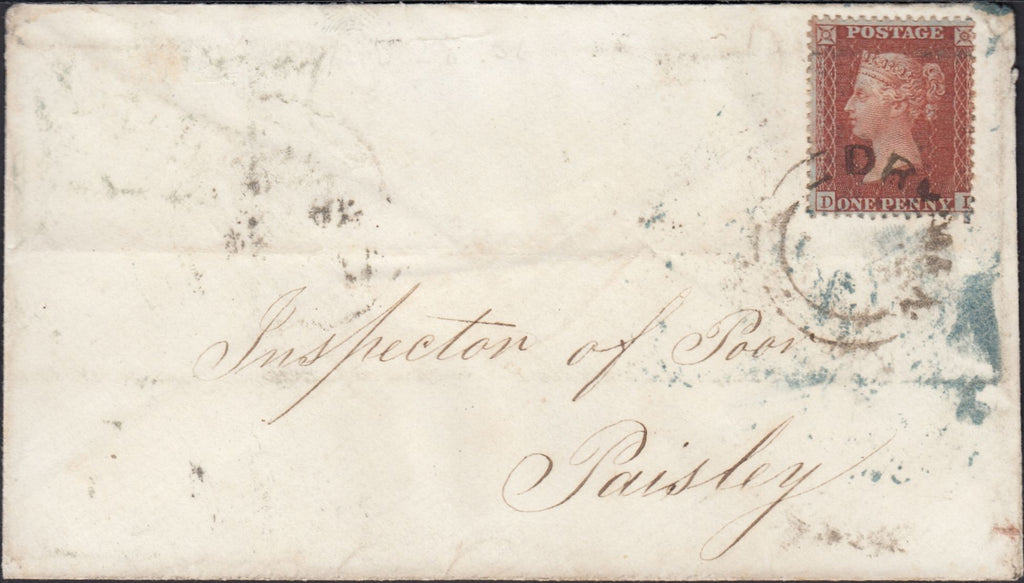 POSTAGE
D ONE PENNY I
Inspector of Poor
Paisley